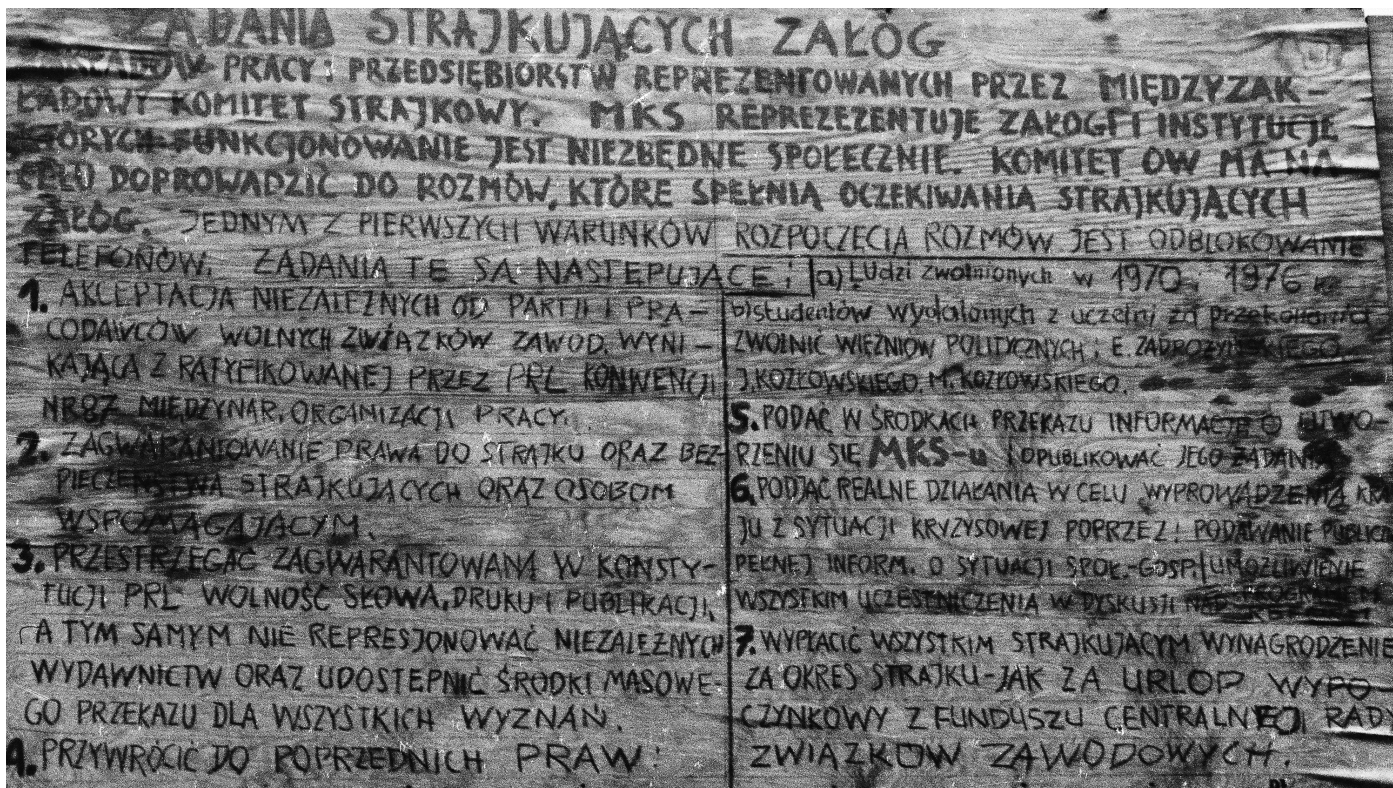 ŻĄDANIA STRAJKUJĄCYCH ZAŁÓG
ZAKŁADÓW PRACY I PRZEDSIĘBIORSTW REPREZENTOWANYCH PRZEZ MIĘDZYZAK-
ŁADOWY KOMITET STRAJKOWY. MKS REPREZEZENTUJE ZAŁOGI I INSTYTUCJE
KTÓRYCH FUNKCJONOWANIE JEST NIEZBĘDNE SPOŁECZNIE. KOMITET ÓW MA NA
CELU DOPROWADZIĆ DO ROZMÓW, KTÓRE SPEŁNIĄ OCZEKIWANIA STRAJKUJĄCYCH
ZAŁÓG. JEDNYM Z PIERWSZYCH WARUNKÓW ROZPOCZĘCIA ROZMÓW JEST ODBLOKOWANIE
TELEFONÓW. ŻĄDANIA TE SĄ NASTĘPUJĄCE:
1. AKCEPTACJA NIEZALEŻNYCH OD PARTII I PRA-
CODAWCÓW WOLNYCH ZWIĄZKÓW ZAWOD. WYNI-
KAJĄCA Z RATYFIKOWANEJ PRZEZ PRL KONWENCJI
NR87 MIĘDZYNAR. ORGANIZACJI PRACY.
2. ZAGWARANTOWANIE PRAWA DO STRAJKU ORAZ BEZ-
PIECZEŃSTWA STRAJKUJĄCYCH ORAZ OSOBOM
WSPOMAGAJĄCYM.
3. PRZESTRZEGAĆ ZAGWARANTOWANĄ W KONSTY-
TUCJI PRL WOLNOŚĆ SŁOWA, DRUKU I PUBLIKACJI,
A TYM SAMYM NIE REPRESJONOWAĆ NIEZALEŻNYCH
WYDAWNICTW ORAZ UDOSTĘPNIĆ ŚRODKI MASOWE-
GO PRZEKAZU DLA WSZYSTKICH WYZNAŃ.
4. PRZYWRÓCIĆ DO POPRZEDNICH PRAW:
a) Ludzi zwolnionych w 1970 i 1976
b) studentów wydalonych z uczelni za przekonania
ZWOLNIĆ WIĘŹNIÓW POLITYCZNYCH: E. ZADROŻYŃSKIEGO
J. KOZŁOWSKIEGO. M. KOZŁOWSKIEGO.
5. PODAĆ W ŚRODKACH PRZEKAZU INFORMACJĘ O UTWO-
RZENIU SIĘ MKS-u I OPUBLIKOWAĆ JEGO ŻĄDANIA
6. PODJĄĆ REALNE DZIAŁANIA W CELU WYPROWADZENIA KRA
JU Z SYTUACJI KRYZYSOWEJ POPRZEZ: PODAWANIE PUBLICZ
PEŁNEJ INFORM. O SYTUACJI SPOŁ.-GOSP. | UMOŻLIWIENIE
WSZYSTKIM UCZESTNICZENIA W DYSKUSJI NAD
7. WYPŁACIĆ WSZYSTKIM STRAJKUJĄCYM WYNAGRODZENIE
ZA OKRES STRAJKU-JAK ZA URLOP WYPO-
CZYNKOWY Z FUNDUSZU CENTRALNEJ RADY
ZWIĄZKÓW ZAWODOWYCH.